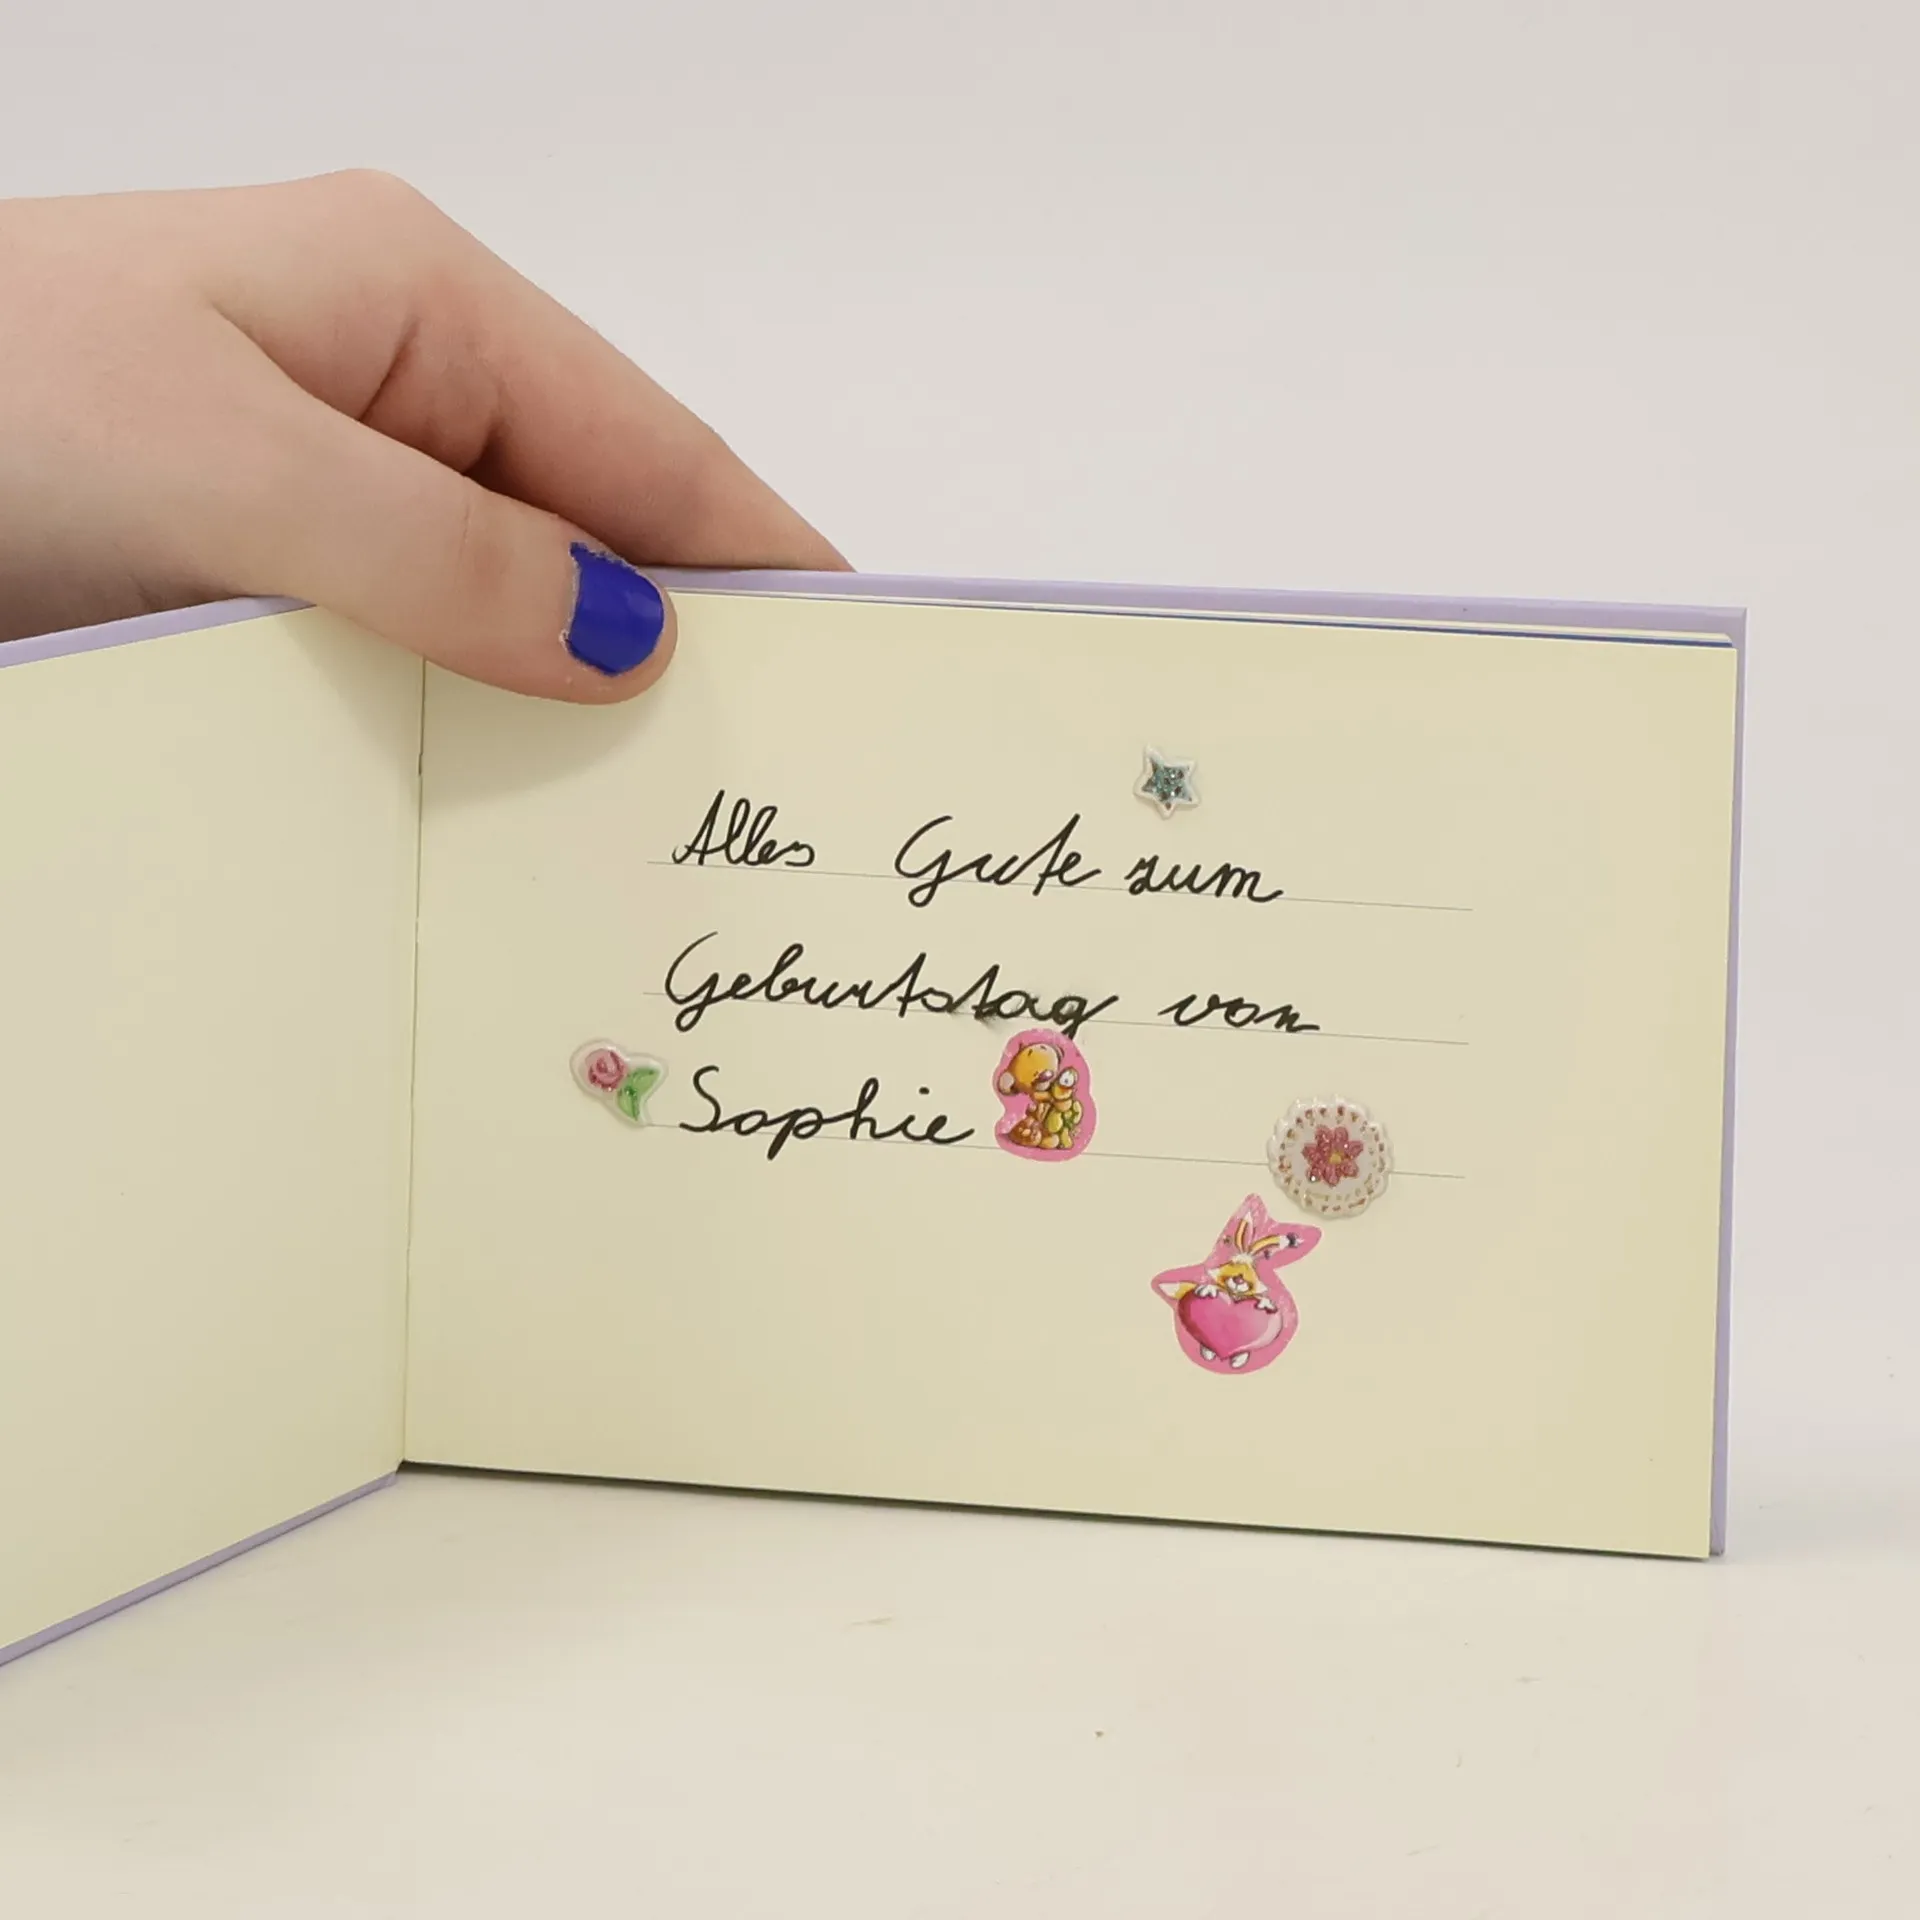 Alles Gute zum
Geburtstag von
Sophie